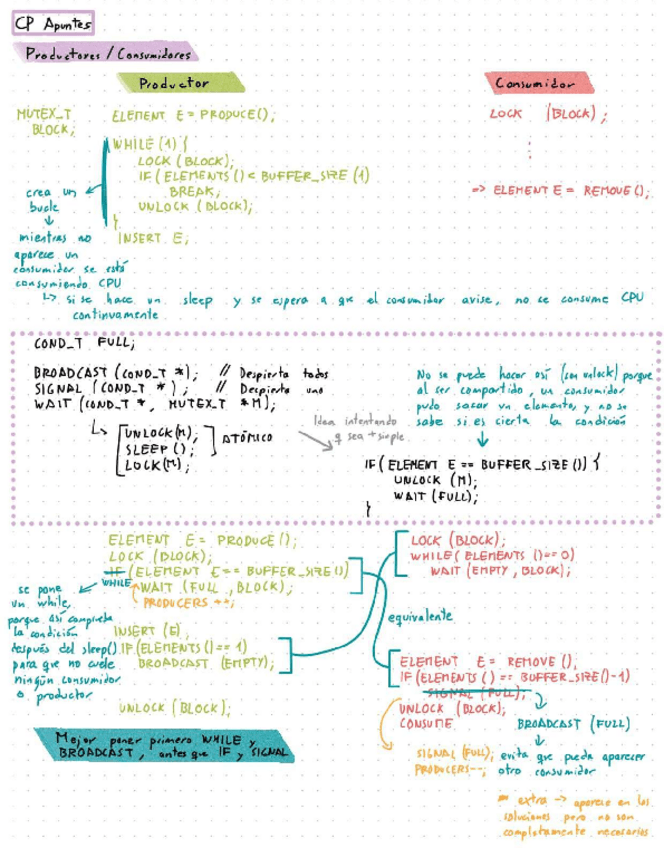 CP Apuntes
Productores / Consumidores
Productor
Consumidor
MUTEX_T
BLOCK;
ELEMENT E = PRODUCE();
WHILE (1) {
LOCK (BLOCK);
IF (ELEMENTS() < BUFFER_SIZE (1)
BREAK;
UNLOCK (BLOCK);
}
INSERT E;
LOCK (BLOCK);
⋮
=> ELEMENT E = REMOVE();
crea un
bucle
mientras no
aparece un
consumidor se está
consumiendo CPU
↳ si se hace un sleep y se espera a que el consumidor avise, no se consume CPU
continuamente
COND_T FULL;
BROADCAST (COND_T *); // Despierta todos
SIGNAL (COND_T *); // Despierta uno
WAIT (COND_T *, MUTEX_T *M);
↳ UNLOCK(M);
SLEEP();
LOCK(M);
ATÓMICO
Idea intentando
q sea + simple
No se puede hacer así (con unlock) porque
al ser compartido, un consumidor
pudo sacar un elemento, y no se
sabe si es cierta la condición
IF (ELEMENT E == BUFFER_SIZE()) {
UNLOCK (M);
WAIT (FULL);
}
ELEMENT E = PRODUCE();
LOCK (BLOCK);
IF (ELEMENT E == BUFFER_SIZE())
WHILE
WAIT (FULL, BLOCK);
PRODUCERS ++;
INSERT (E),
IF (ELEMENTS() == 1)
BROADCAST (EMPTY);
UNLOCK (BLOCK);
se pone
un while,
porque así comprueba
la condición
después del sleep()
para que no cuele
ningún consumidor
o productor
Mejor poner primero WHILE y
BROADCAST, antes que IF y SIGNAL
LOCK (BLOCK);
WHILE (ELEMENTS () == 0)
WAIT (EMPTY, BLOCK);
equivalente
ELEMENT E = REMOVE (),
IF (ELEMENTS () == BUFFER_SIZE()-1)
SIGNAL (FULL);
UNLOCK (BLOCK);
CONSUME
BROADCAST (FULL)
SIGNAL (FULL);
PRODUCERS--;
evita que pueda aparecer
otro consumidor
* extra -> aparece en las
soluciones pero no son
completamente necesarios